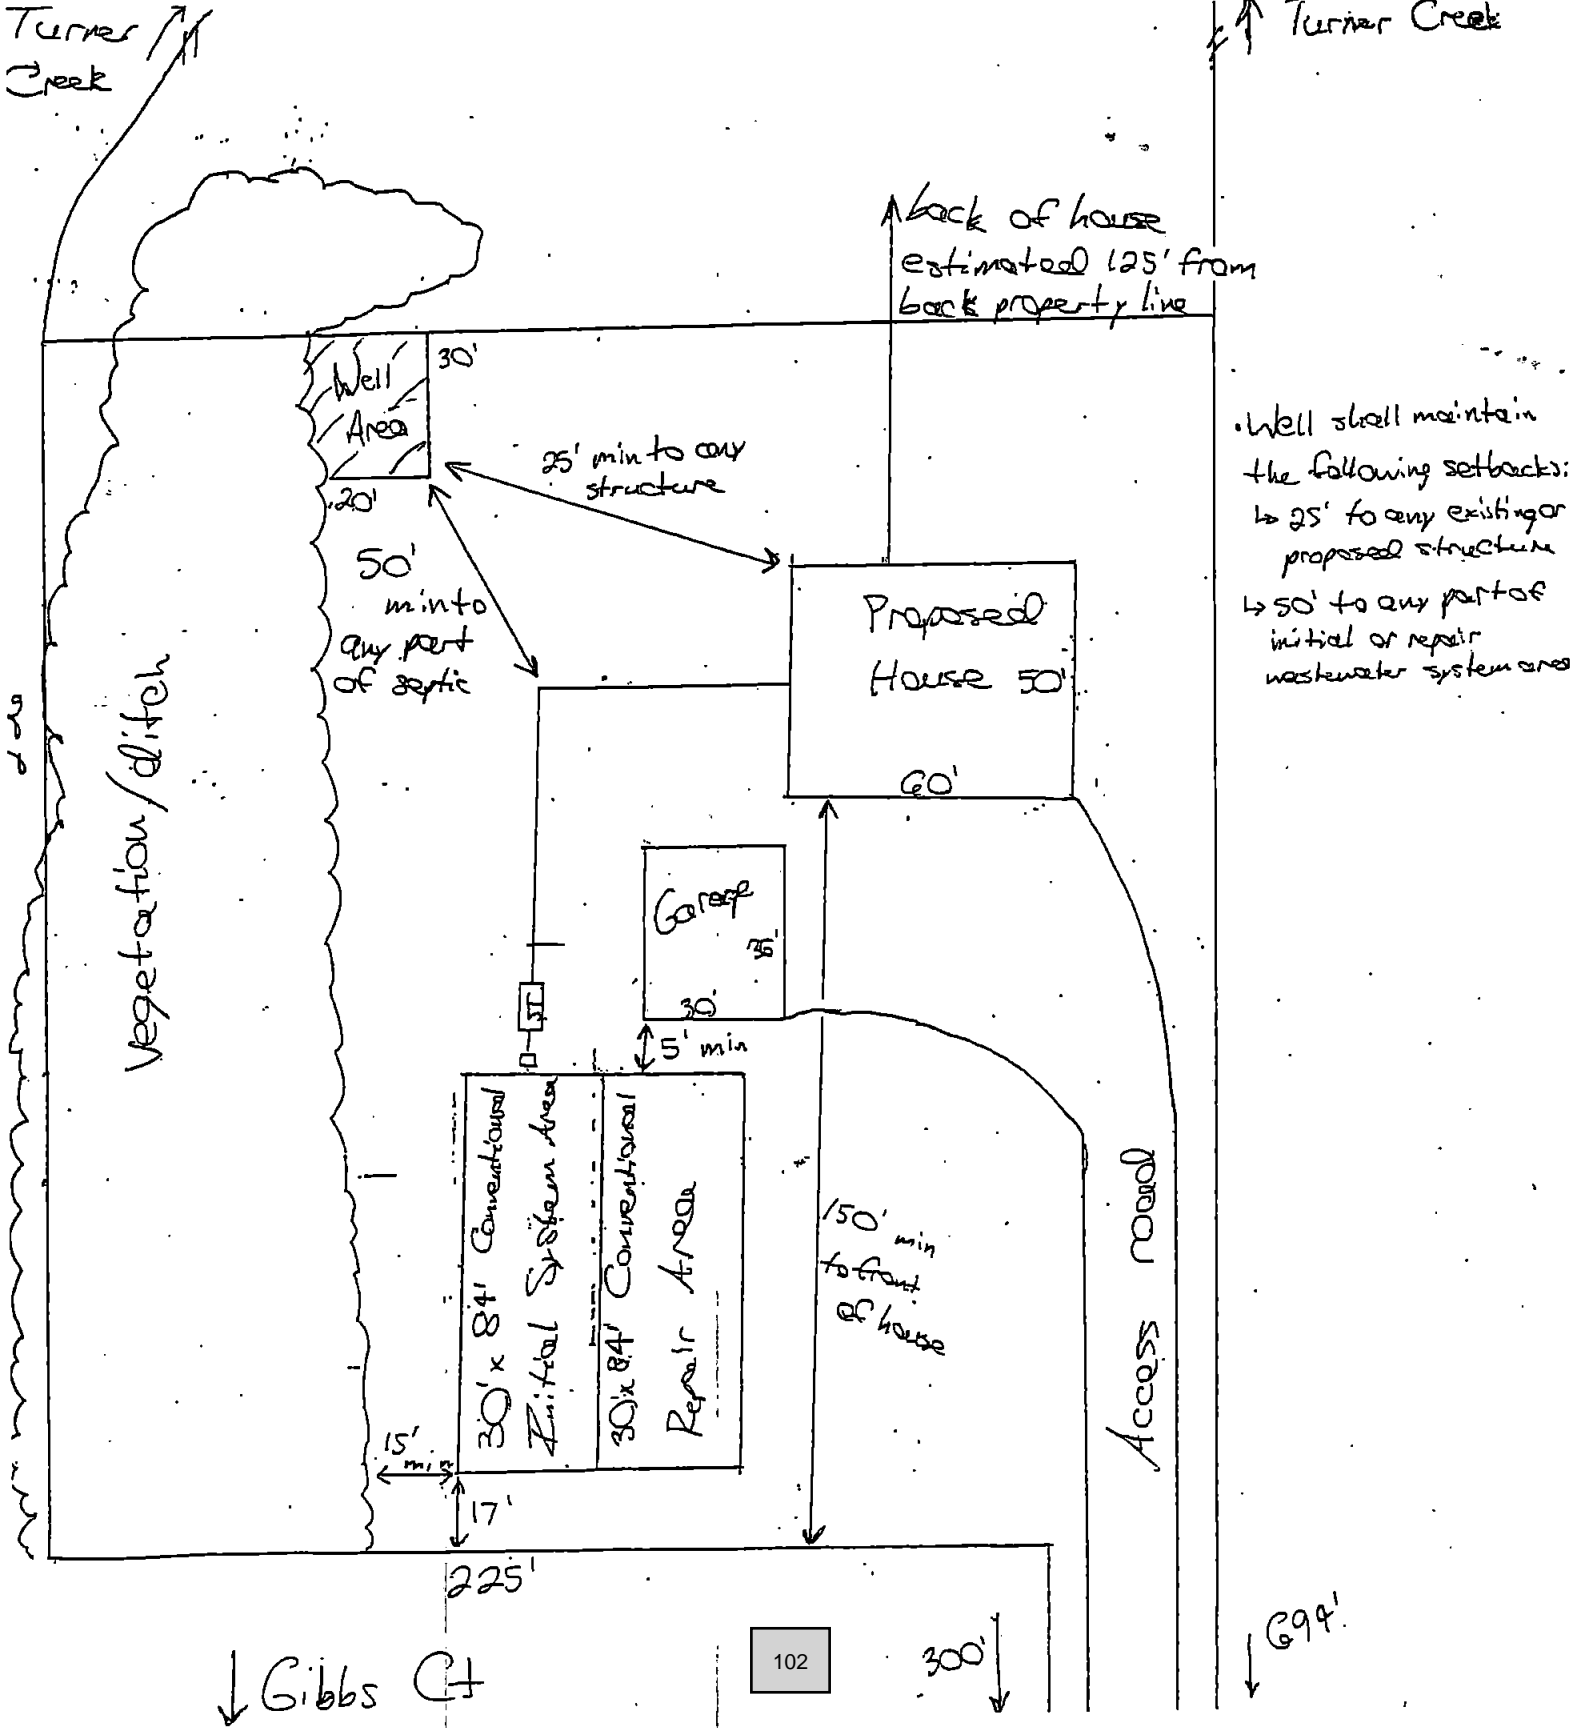 Turner
Creek
Turner Creek
back of house
estimated 125' from
back property line
Well
Area
30'
20'
25' min to any
structure
50'
min to
any part
of septic
• Well shall maintain
the following setbacks:
↳ 25' to any existing or
proposed structure
↳ 50' to any part of
initial or repair
wastewater system area
Proposed
House 50'
60'
Vegetation/ditch
Garage
35'
30'
ST
5' min
30' x 84' Conventional
Initial System Area
30' x 84' Conventional
Repair Area
150' min
to front
of house
Access road
15'
min
17'
225'
Gibbs Ct
102
300'
694'